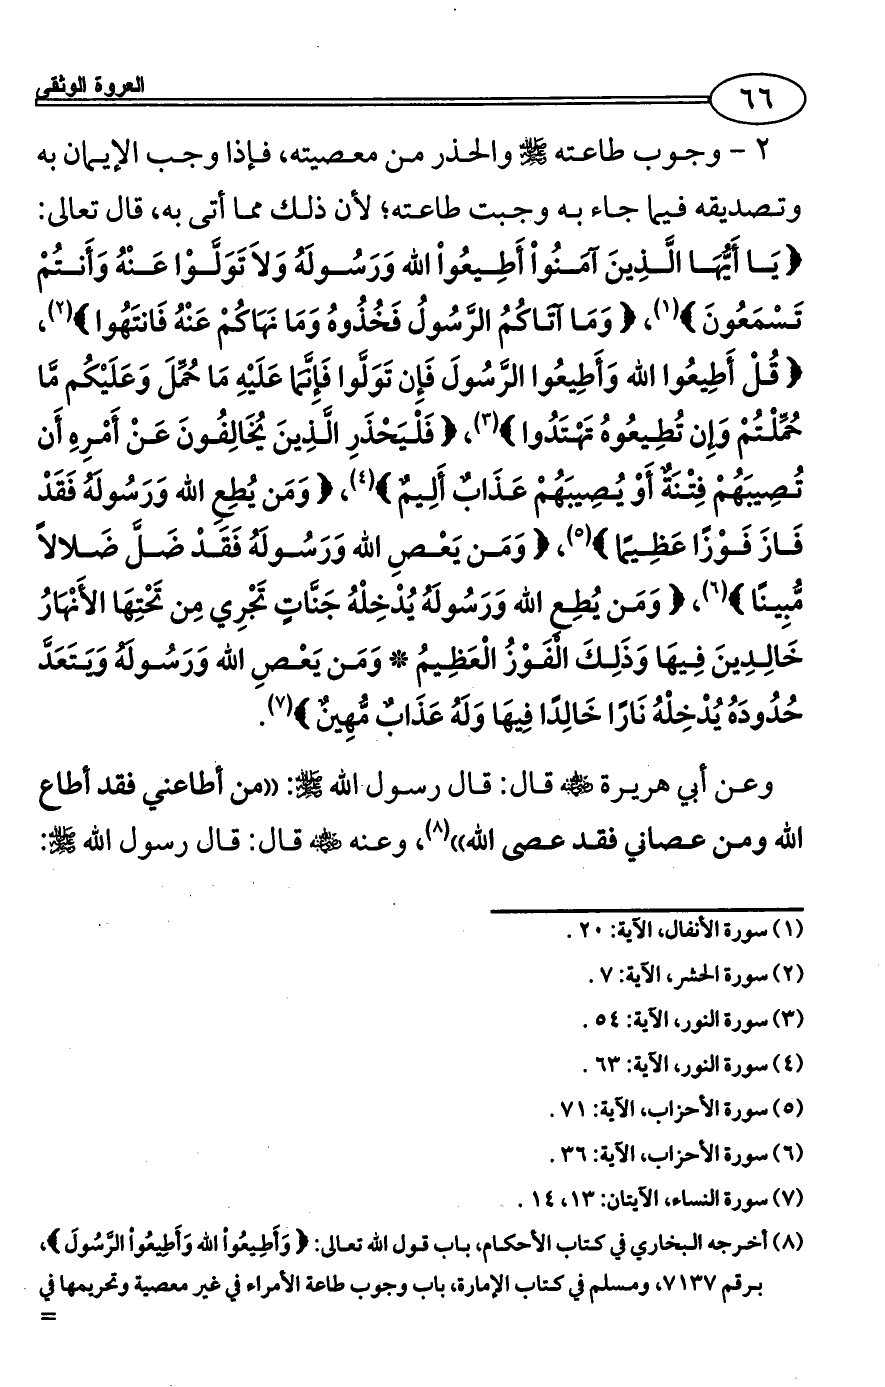 العروة الوثقى
٦٦
٢ – وجوب طاعته ﷺ والحذر من معصيته، فإذا وجب الإيمان به
وتصديقه فيما جاء به وجبت طاعته؛ لأن ذلك مما أتى به، قال تعالى:
﴿يَا أَيُّهَا الَّذِينَ آمَنُواْ أَطِيعُواْ الله وَرَسُولَهُ وَلاَ تَوَلَّوْا عَنْهُ وَأَنتُمْ
تَسْمَعُونَ﴾(١)، ﴿وَمَا آتَاكُمُ الرَّسُولُ فَخُذُوهُ وَمَا نَهَاكُمْ عَنْهُ فَانتَهُوا﴾(٢)،
﴿قُلْ أَطِيعُوا الله وَأَطِيعُوا الرَّسُولَ فَإِن تَوَلَّوا فَإِنَّمَا عَلَيْهِ مَا حُمِّلَ وَعَلَيْكُم مَّا
حُمِّلْتُمْ وَإِن تُطِيعُوهُ تَهْتَدُوا﴾(٣)، ﴿فَلْيَحْذَرِ الَّذِينَ يُخَالِفُونَ عَنْ أَمْرِهِ أَن
تُصِيبَهُمْ فِتْنَةٌ أَوْ يُصِيبَهُمْ عَذَابٌ أَلِيمٌ﴾(٤)، ﴿وَمَن يُطِعِ الله وَرَسُولَهُ فَقَدْ
فَازَ فَوْزًا عَظِيمًا﴾(٥)، ﴿وَمَن يَعْصِ الله وَرَسُولَهُ فَقَدْ ضَلَّ ضَلالاً
مُّبِينًا﴾(٦)، ﴿وَمَن يُطِعِ الله وَرَسُولَهُ يُدْخِلْهُ جَنَّاتٍ تَجْرِي مِن تَحْتِهَا الأَنْهَارُ
خَالِدِينَ فِيهَا وَذَلِكَ الْفَوْزُ الْعَظِيمُ * وَمَن يَعْصِ الله وَرَسُولَهُ وَيَتَعَدَّ
حُدُودَهُ يُدْخِلْهُ نَارًا خَالِدًا فِيهَا وَلَهُ عَذَابٌ مُّهِينٌ﴾(٧).
وعن أبي هريرة ﵁ قال: قال رسول الله ﷺ: ((من أطاعني فقد أطاع
الله ومن عصاني فقد عصى الله))(٨)، وعنه ﵁ قال: قال رسول الله ﷺ:
(١) سورة الأنفال، الآية: ٢٠ .
(٢) سورة الحشر، الآية: ٧ .
(٣) سورة النور، الآية: ٥٤ .
(٤) سورة النور، الآية: ٦٣ .
(٥) سورة الأحزاب، الآية: ٧١ .
(٦) سورة الأحزاب، الآية: ٣٦ .
(٧) سورة النساء، الآيتان: ١٣، ١٤ .
(٨) أخرجه البخاري في كتاب الأحكام، باب قول الله تعالى: ﴿وَأَطِيعُواْ الله وَأَطِيعُواْ الرَّسُولَ﴾،
برقم ٧١٣٧، ومسلم في كتاب الإمارة، باب وجوب طاعة الأمراء في غير معصية وتحريمها في
=